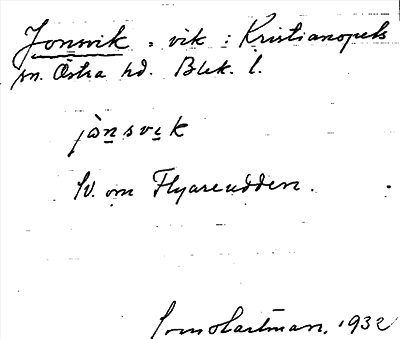 Jonsvik, vik i Kristianopels
sn. Östra hd. Blek. l.
jànsvik
SV. om Flyareudden.
Hartman, 1932